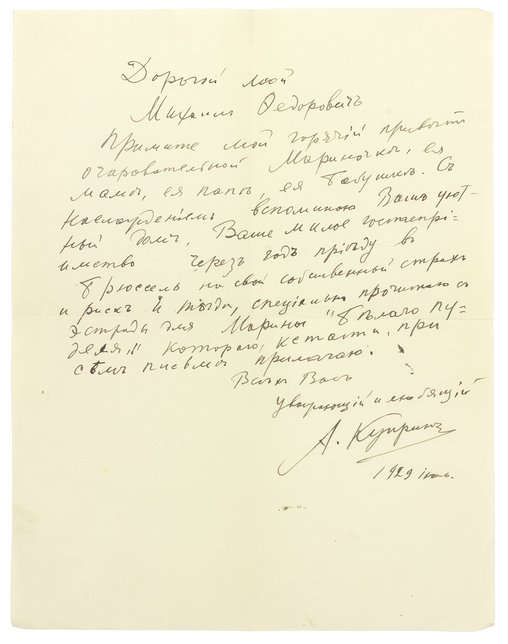 Дорогой мой
Михаилъ Ѳедоровичъ
Примите мой горячій привѣтъ
очаровательной Мариночкѣ, ея
мамѣ, ея папѣ, ея бабушкѣ. Съ
наслажденіемъ вспоминаю Вашъ уют-
ный домъ, Ваше милое гостепрі-
имство Черезъ годъ пріѣду въ
Брюссель на свой собственный страхъ
и рискъ и тогда, спеціально прочитаю съ
эстрады для Марины "Бѣлаго пу-
деля" котораго, кстати, при
семъ письмѣ прилагаю.
Всѣхъ Васъ
уважающій и любящій
А. Купринъ
1929